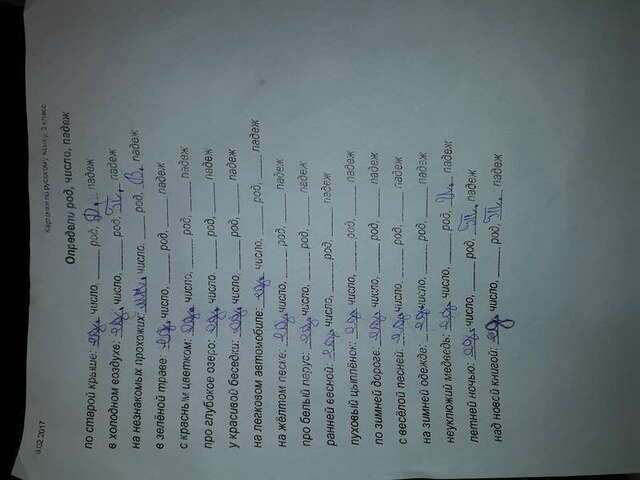 Карточки по русскому языку, 3 класс
02.2017
Определи род, число, падеж
по старой крыше: ед. число, ____ род, Д. падеж
в холодном воздухе: ед. число, ____ род, П. падеж
на незнакомых прохожих: мн. число, ____ род, В. падеж
в зелёной траве: ед. число, ____ род, ____ падеж
с красным цветком: ед. число, ____ род, ____ падеж
про глубокое озеро: ед. число, ____ род, ____ падеж
у красивой беседки: ед. число, ____ род, ____ падеж
на легковом автомобиле: ед. число, ____ род, ____ падеж
на жёлтом песке: ед. число, ____ род, ____ падеж
про белый парус: ед. число, ____ род, ____ падеж
ранней весной: ед. число, ____ род, ____ падеж
пуховый цыплёнок: ед. число, ____ род, ____ падеж
по зимней дороге: ед. число, ____ род, ____ падеж
с весёлой песней: ед. число, ____ род, ____ падеж
на зимней одежде: ед. число, ____ род, ____ падеж
неуклюжий медведь: ед. число, ____ род, И. падеж
летней ночью: ед. число, ____ род, Т. падеж
над новой книгой: ед. число, ____ род, Т. падеж